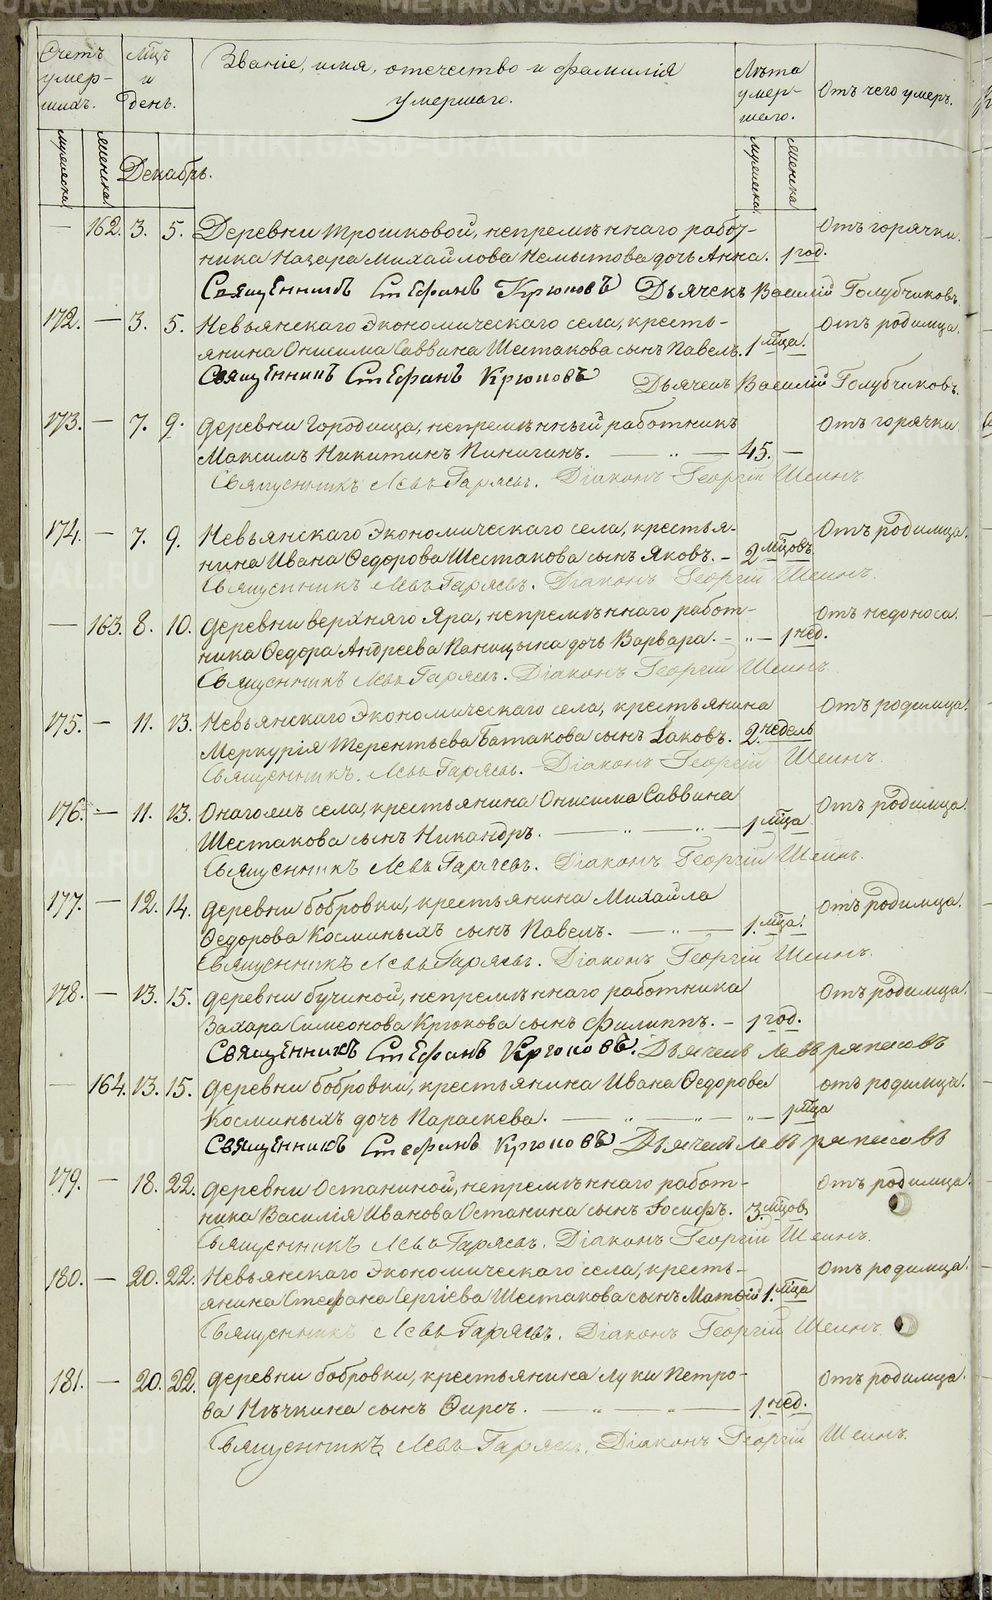 Счетъ умер-
шихъ.
Мц̃ъ и день.
Званіе, имя, отечество и фамилія
умершаго.
Лѣта умер-
шаго.
Отъ чего умеръ.
мужеска
женска
Декабрь.
мужеска
женска
— 162. 3. 5. Деревни Трошковой, непремѣннаго работ- Отъ горячки.
ника Назара Михайлова Немытова дочь Анна. 1 год.
Священникъ Стефанъ Крюковъ Дьячекъ Василій Голубчиковъ
172. — 3. 5. Невьянскаго Экономическаго села, кресть- Отъ родимца.
янина Онисима Саввина Шестакова сынъ Павелъ. 1 мц̃а.
Священникъ Стефанъ Крюковъ Дьячекъ Василій Голубчиковъ.
173. — 7. 9. Деревни Городища, непремѣнный работникъ Отъ горячки.
Максимъ Никитинъ Пинигинъ. — „ — 45. —
Священникъ Левъ Гаряевъ. Діаконъ Георгій Шеинъ.
174. — 7. 9. Невьянскаго Экономическаго села, крестья- Отъ родимца.
нина Ивана Ѳедорова Шестакова сынъ Яковъ. – 2 мц̃овъ
Священникъ Левъ Гаряевъ. Діаконъ Георгій Шеинъ.
— 163. 8. 10. Деревни верхняго Яра, непремѣннаго работ- Отъ недоноса.
ника Ѳедора Андреева Паницына дочь Варвара. – „ – 1 нед.
Священникъ Левъ Гаряевъ. Діаконъ Георгій Шеинъ.
175. — 11. 13. Невьянскаго Экономическаго села, крестьянина Отъ родимца.
Меркурія Терентьева Батакова сынъ Іаковъ. 2. недель
Священникъ Левъ Гаряевъ. Діаконъ Георгій Шеинъ.
176. — 11. 13. Онагожъ села, крестьянина Онисима Саввина Отъ родимца.
Шестакова сынъ Никандръ. — „ — „ — 1 мц̃а
Священникъ Левъ Гаряевъ. Діаконъ Георгій Шеинъ.
177. — 12. 14. Деревни бобровки, крестьянина Михайла Отъ родимца.
Ѳедорова Косминыхъ сынъ Павелъ. — „ — 1. мц̃а.
Священникъ Левъ Гаряевъ. Діаконъ Георгій Шеинъ.
178. — 13. 15. Деревни бучиной, непремѣннаго работника Отъ родимца.
Захара Симеонова Крюкова сынъ Филиппъ. – 1 год.
Священникъ Стефанъ Крюковъ. Дьячекъ Левъ
— 164. 13. 15. Деревни бобровки, крестьянина Ивана Ѳедорова отъ родимца.
Косминыхъ дочь Параскева. — „ — „ — „ – 1 мц̃а
Священникъ Стефанъ Крюковъ Дьячекъ Левъ
179. — 18. 22. Деревни Останиной, непремѣннаго работ- Отъ родимца.
ника Василія Иванова Останина сынъ Іосифъ. 3. мц̃ов
Священникъ Левъ Гаряевъ. Діаконъ Георгій Шеинъ.
180. — 20. 22. Невьянскаго Экономическаго села, кресть- Отъ родимца.
янина Стефана Сергіева Шестакова сынъ Матѳій 1. мц̃а
Священникъ Левъ Гаряевъ. Діаконъ Георгій Шеинъ.
181. — 20. 22. Деревни бобровки, крестьянина Луки Петро- Отъ родимца.
ва Нѣчкина сынъ Ѳирсъ. — „ — „ — 1. нед.
Священникъ Левъ Гаряевъ. Діаконъ Георгій Шеинъ.
METRIKI.GASU-URAL.RU